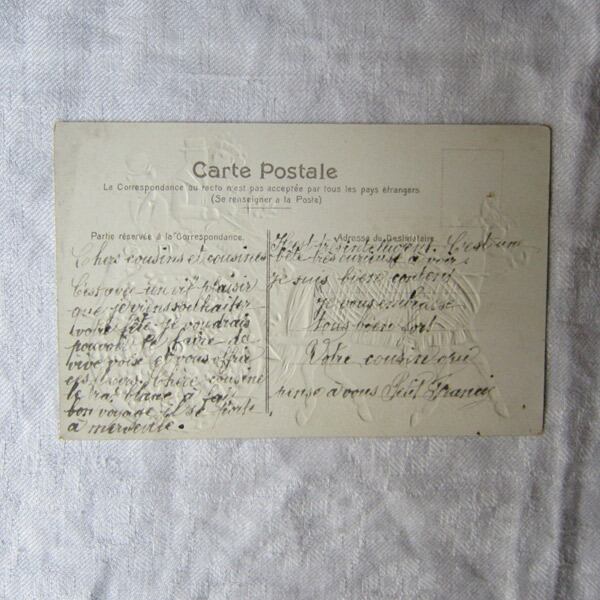 Carte Postale
La Correspondance au recto n'est pas acceptée par tous les pays étrangers
(Se renseigner à la Poste)
Partie réservée à la Correspondance.
Adresse du Destinataire
Chers cousins et cousines
C'est avec un vif plaisir
que je viens souhaiter
votre fête je voudrais
pouvoir le faire de
vive voix et vous offrir
ces fleurs. Chère cousine
le rat blanc a fait
bon voyage il se porte
a merveille.
présentement. C'est une
bête très curieuse a voir.
je suis bien content
je vous embrasse
tous bien fort
Votre cousin qui
pense a vous